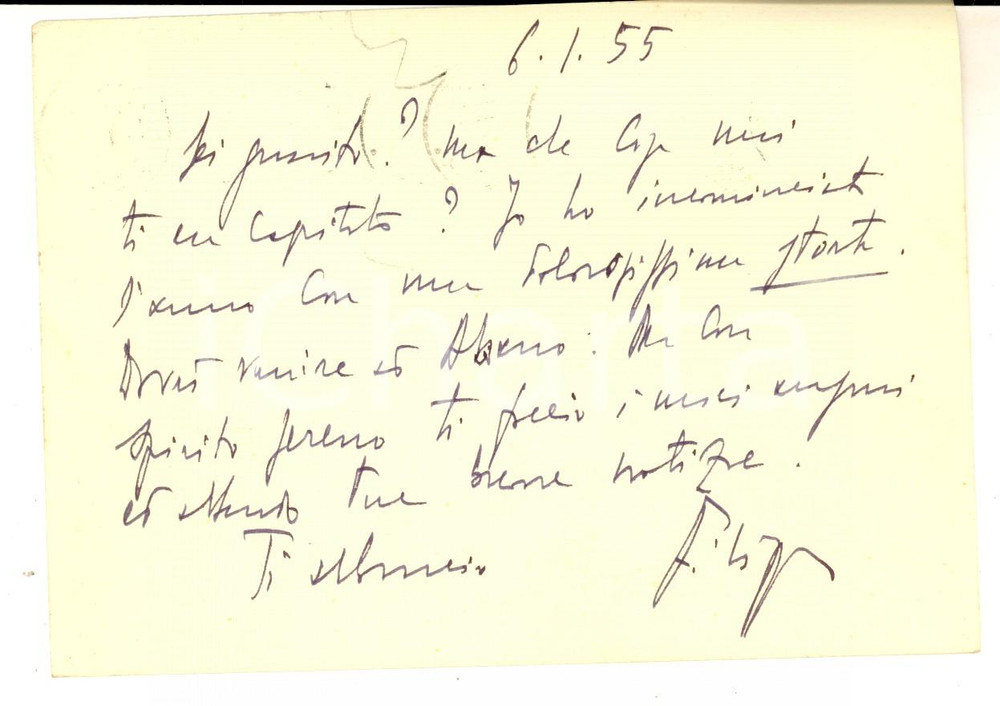 6.1.55
Sei guarito? ma che cosa mai
ti era capitato? Io ho incominciato
l'anno con una dolorosissima storta.
Dovrò venire ad Abano. Ma con
spirito sereno ti faccio i miei auguri
ed attendo tue buone notizie.
Ti abbraccio Filippo